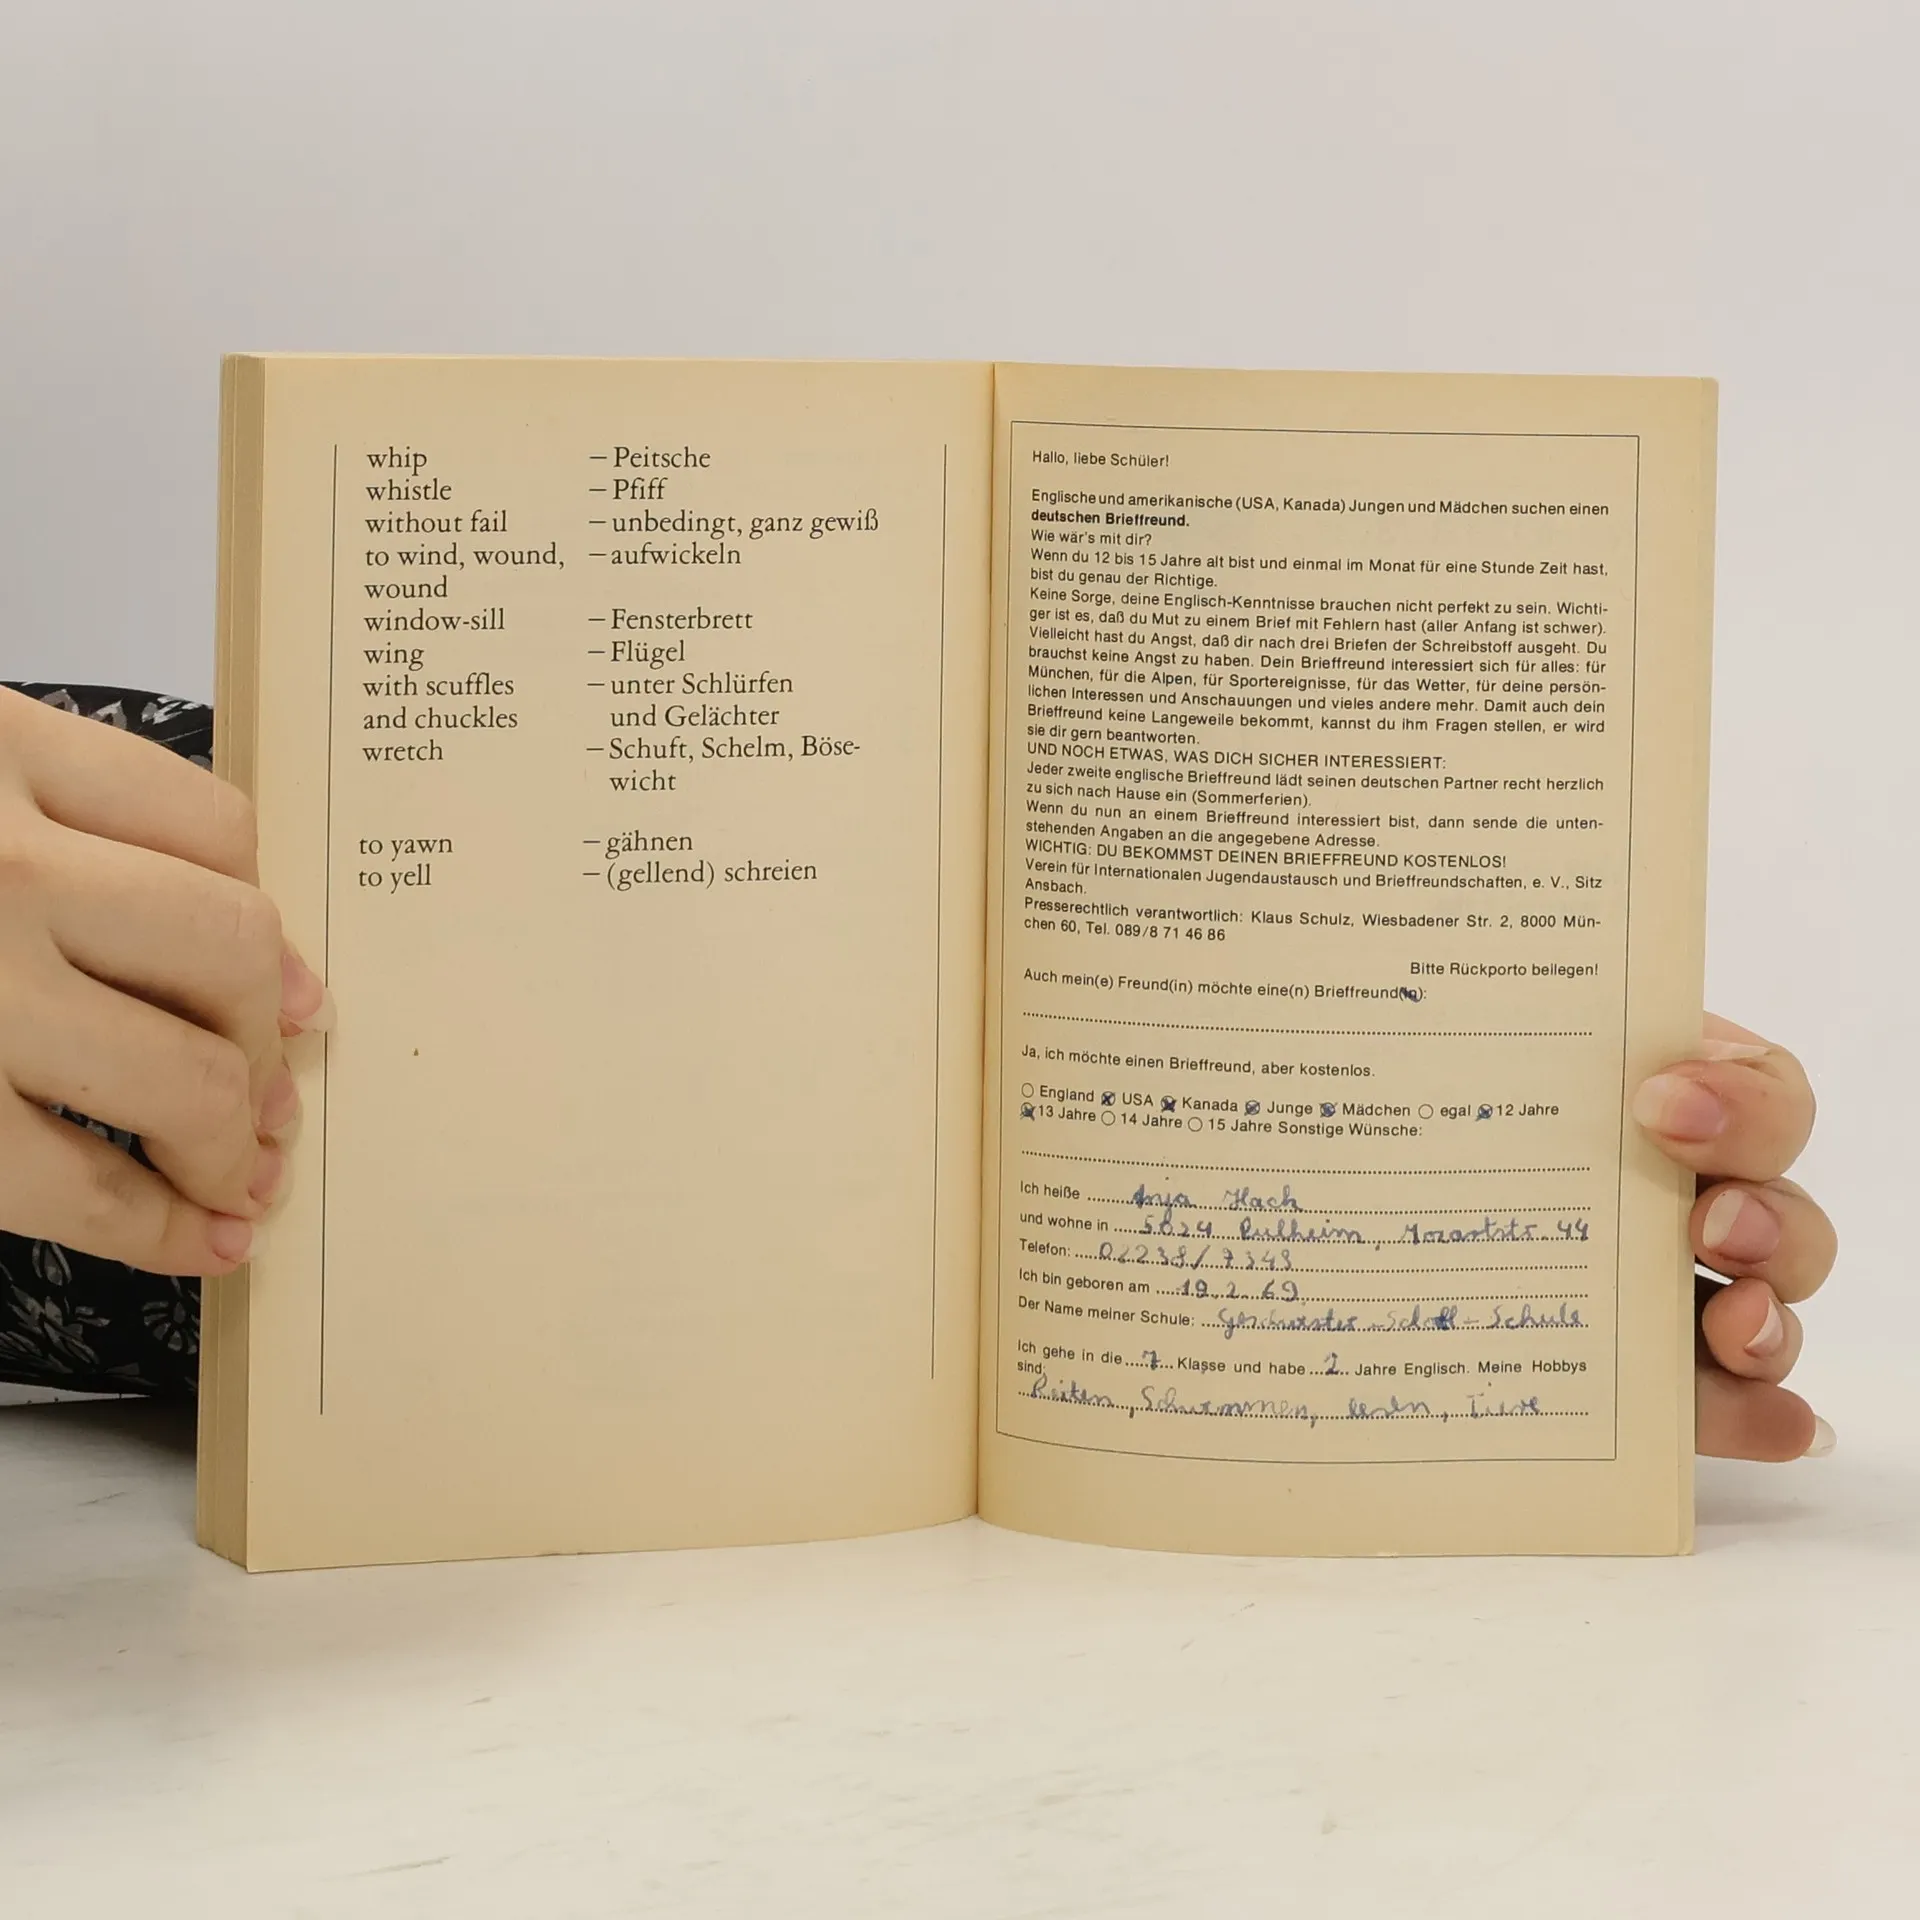 whip – Peitsche
whistle – Pfiff
without fail – unbedingt, ganz gewiß
to wind, wound, – aufwickeln
wound
window-sill – Fensterbrett
wing – Flügel
with scuffles – unter Schlürfen
and chuckles und Gelächter
wretch – Schuft, Schelm, Böse-
wicht
to yawn – gähnen
to yell – (gellend) schreien
Hallo, liebe Schüler!
Englische und amerikanische (USA, Kanada) Jungen und Mädchen suchen einen
deutschen Brieffreund.
Wie wär's mit dir?
Wenn du 12 bis 15 Jahre alt bist und einmal im Monat für eine Stunde Zeit hast,
bist du genau der Richtige.
Keine Sorge, deine Englisch-Kenntnisse brauchen nicht perfekt zu sein. Wichti-
ger ist es, daß du Mut zu einem Brief mit Fehlern hast (aller Anfang ist schwer).
Vielleicht hast du Angst, daß dir nach drei Briefen der Schreibstoff ausgeht. Du
brauchst keine Angst zu haben. Dein Brieffreund interessiert sich für alles: für
München, für die Alpen, für Sportereignisse, für das Wetter, für deine persön-
lichen Interessen und Anschauungen und vieles andere mehr. Damit auch dein
Brieffreund keine Langeweile bekommt, kannst du ihm Fragen stellen, er wird
sie dir gern beantworten.
UND NOCH ETWAS, WAS DICH SICHER INTERESSIERT:
Jeder zweite englische Brieffreund lädt seinen deutschen Partner recht herzlich
zu sich nach Hause ein (Sommerferien).
Wenn du nun an einem Brieffreund interessiert bist, dann sende die unten-
stehenden Angaben an die angegebene Adresse.
WICHTIG: DU BEKOMMST DEINEN BRIEFFREUND KOSTENLOS!
Verein für Internationalen Jugendaustausch und Brieffreundschaften, e. V., Sitz
Ansbach.
Presserechtlich verantwortlich: Klaus Schulz, Wiesbadener Str. 2, 8000 Mün-
chen 60, Tel. 089/8 71 46 86
Bitte Rückporto beilegen!
Auch mein(e) Freund(in) möchte eine(n) Brieffreund(in):
Ja, ich möchte einen Brieffreund, aber kostenlos.
England USA Kanada Junge Mädchen egal 12 Jahre
13 Jahre 14 Jahre 15 Jahre Sonstige Wünsche:
Ich heiße Anja Hack
und wohne in 5024 Pulheim, Mozartstr. 44
Telefon: 02238/7343
Ich bin geboren am 19.2.69
Der Name meiner Schule: Geschwister-Scholl-Schule
Ich gehe in die 7 Klasse und habe 2 Jahre Englisch. Meine Hobbys
sind:
Reiten, Schwimmen, lesen, Tiere